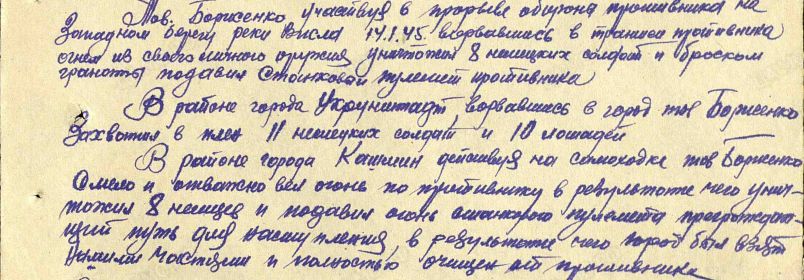 Тов. Борисенко участвуя в прорыве обороны противника на
Западном берегу реки Висла 14.1.45 ворвавшись в траншеи противника
огнем из своего личного оружия уничтожил 8 немецких солдат и броском
гранаты подавил станковой пулемет противника
В районе города ворвавшись в город тов Борисенко
Захватил в плен 11 немецких солдат и 10 лошадей
В районе города действуя на самоходке тов Борисенко
Смело и отважно вел огонь по противнику в результате чего унич-
тожил 8 немцев и подавил огонь станкового пулемета преграждаю-
щий путь для наступления, в результате чего город был взят
нашими частями и полностью очищен от противника